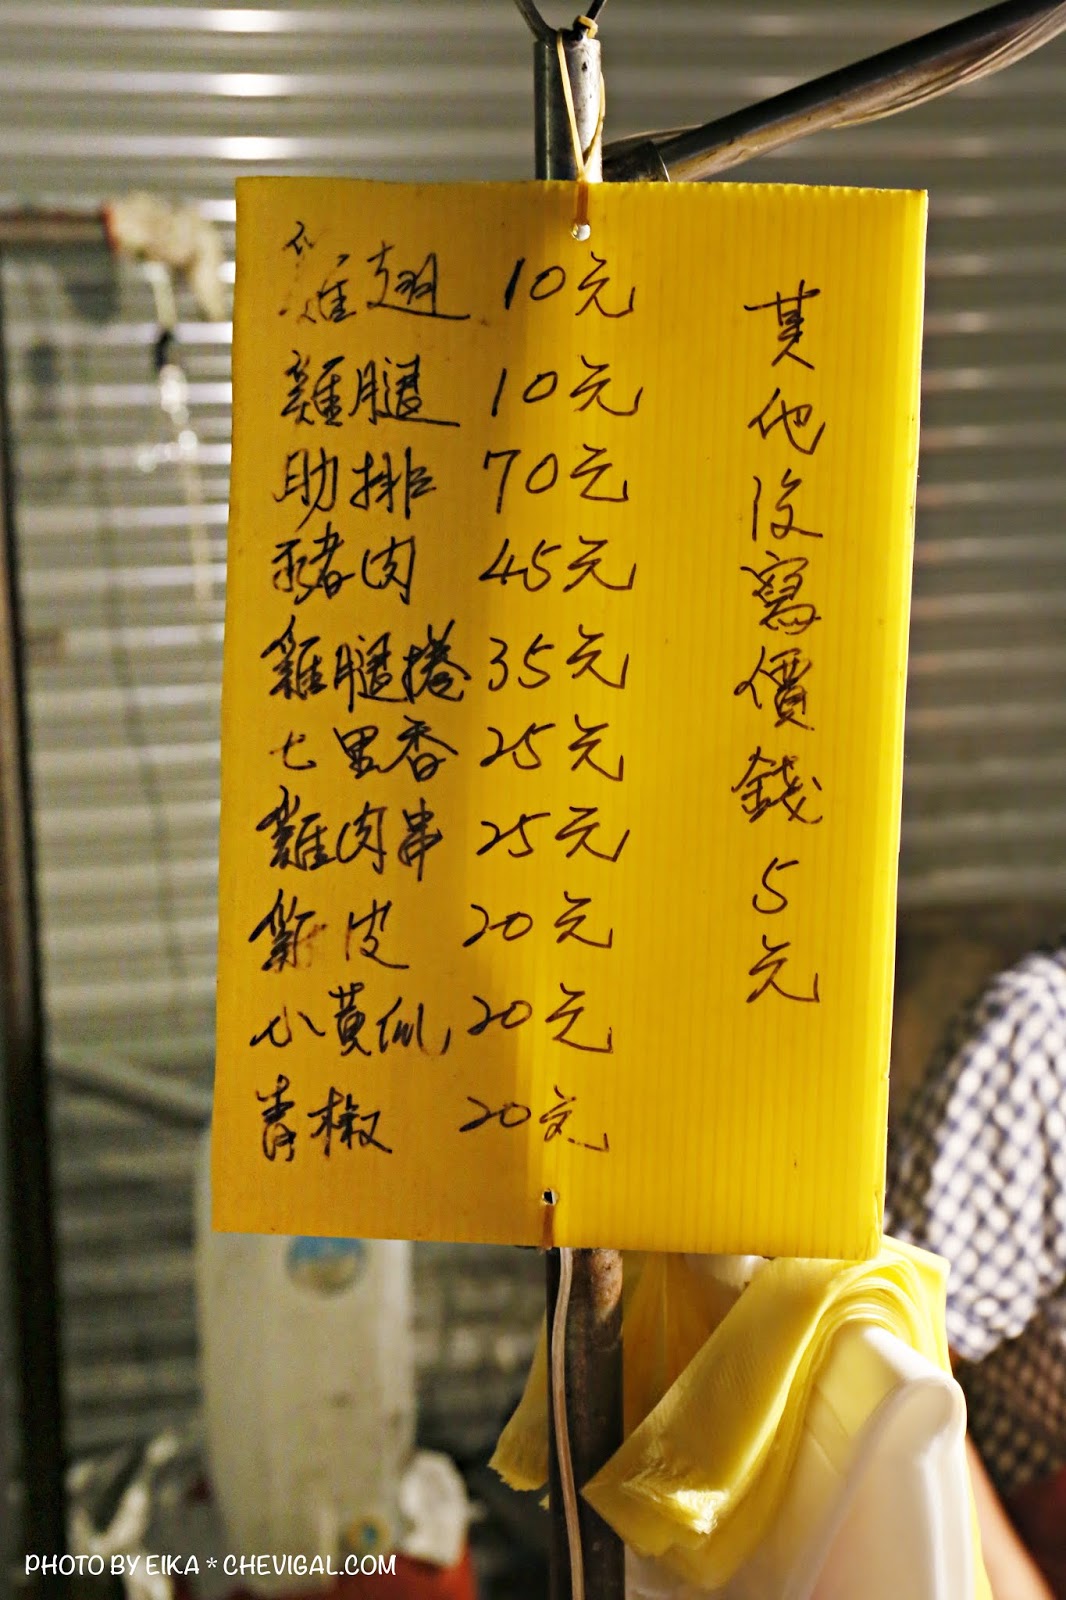 雞翅 10元
雞腿 10元
肋排 70元
豬肉 45元
雞腿捲 35元
七里香 25元
雞肉串 25元
雞皮 20元
小黃瓜 20元
青椒 20元
其他沒寫價錢5元
PHOTO BY EIKA * CHEVIGAL.COM